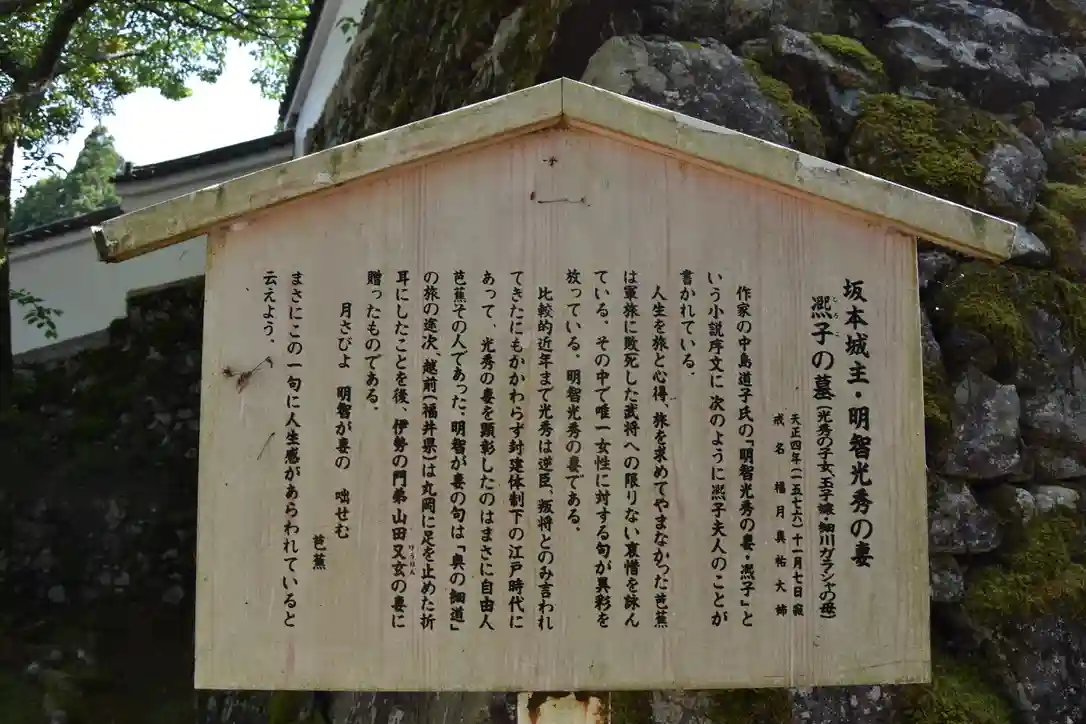 坂本城主・明智光秀の妻
凞子の墓(光秀の子女、玉子嬢・細川ガラシャの母)
天正四年(一五七六)十一月七日寂
戒名 福月真祐大姉
作家の中島道子氏の「明智光秀の妻・凞子」と
いう小説序文に次のように凞子夫人のことが
書かれている。
人生を旅と心得、旅を求めてやまなかった芭蕉
は軍旅に敗死した武将への限りない哀惜を詠ん
ている。その中で唯一女性に対する句が異彩を
放っている。明智光秀の妻である。
比較的近年まで光秀は逆臣、叛将とのみ言われ
てきたにもかかわらず封建体制下の江戸時代に
あって、光秀の妻を顕彰したのはまさに自由人
芭蕉その人であった。明智が妻の句は「奥の細道」
の旅の途次、越前(福井県)は丸岡に足を止めた折
耳にしたことを後、伊勢の門弟山田又玄の妻に
贈ったものである。
月さびよ 明智が妻の 咄せむ
芭蕉
まさにこの一句に人生感があらわれていると
云えよう。